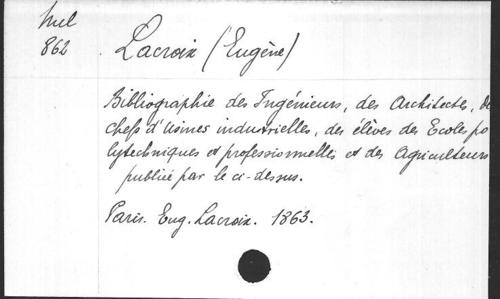 862
Lacroix (Eugène)
Bibliographie des Ingénieurs, des Architectes, de
chefs d'Usines industrielles, des élèves des Ecoles po
lytechniques et professionnelles et des Agriculteurs
publiée par le ci-dessus.
Paris. Eug. Lacroix. 1863.